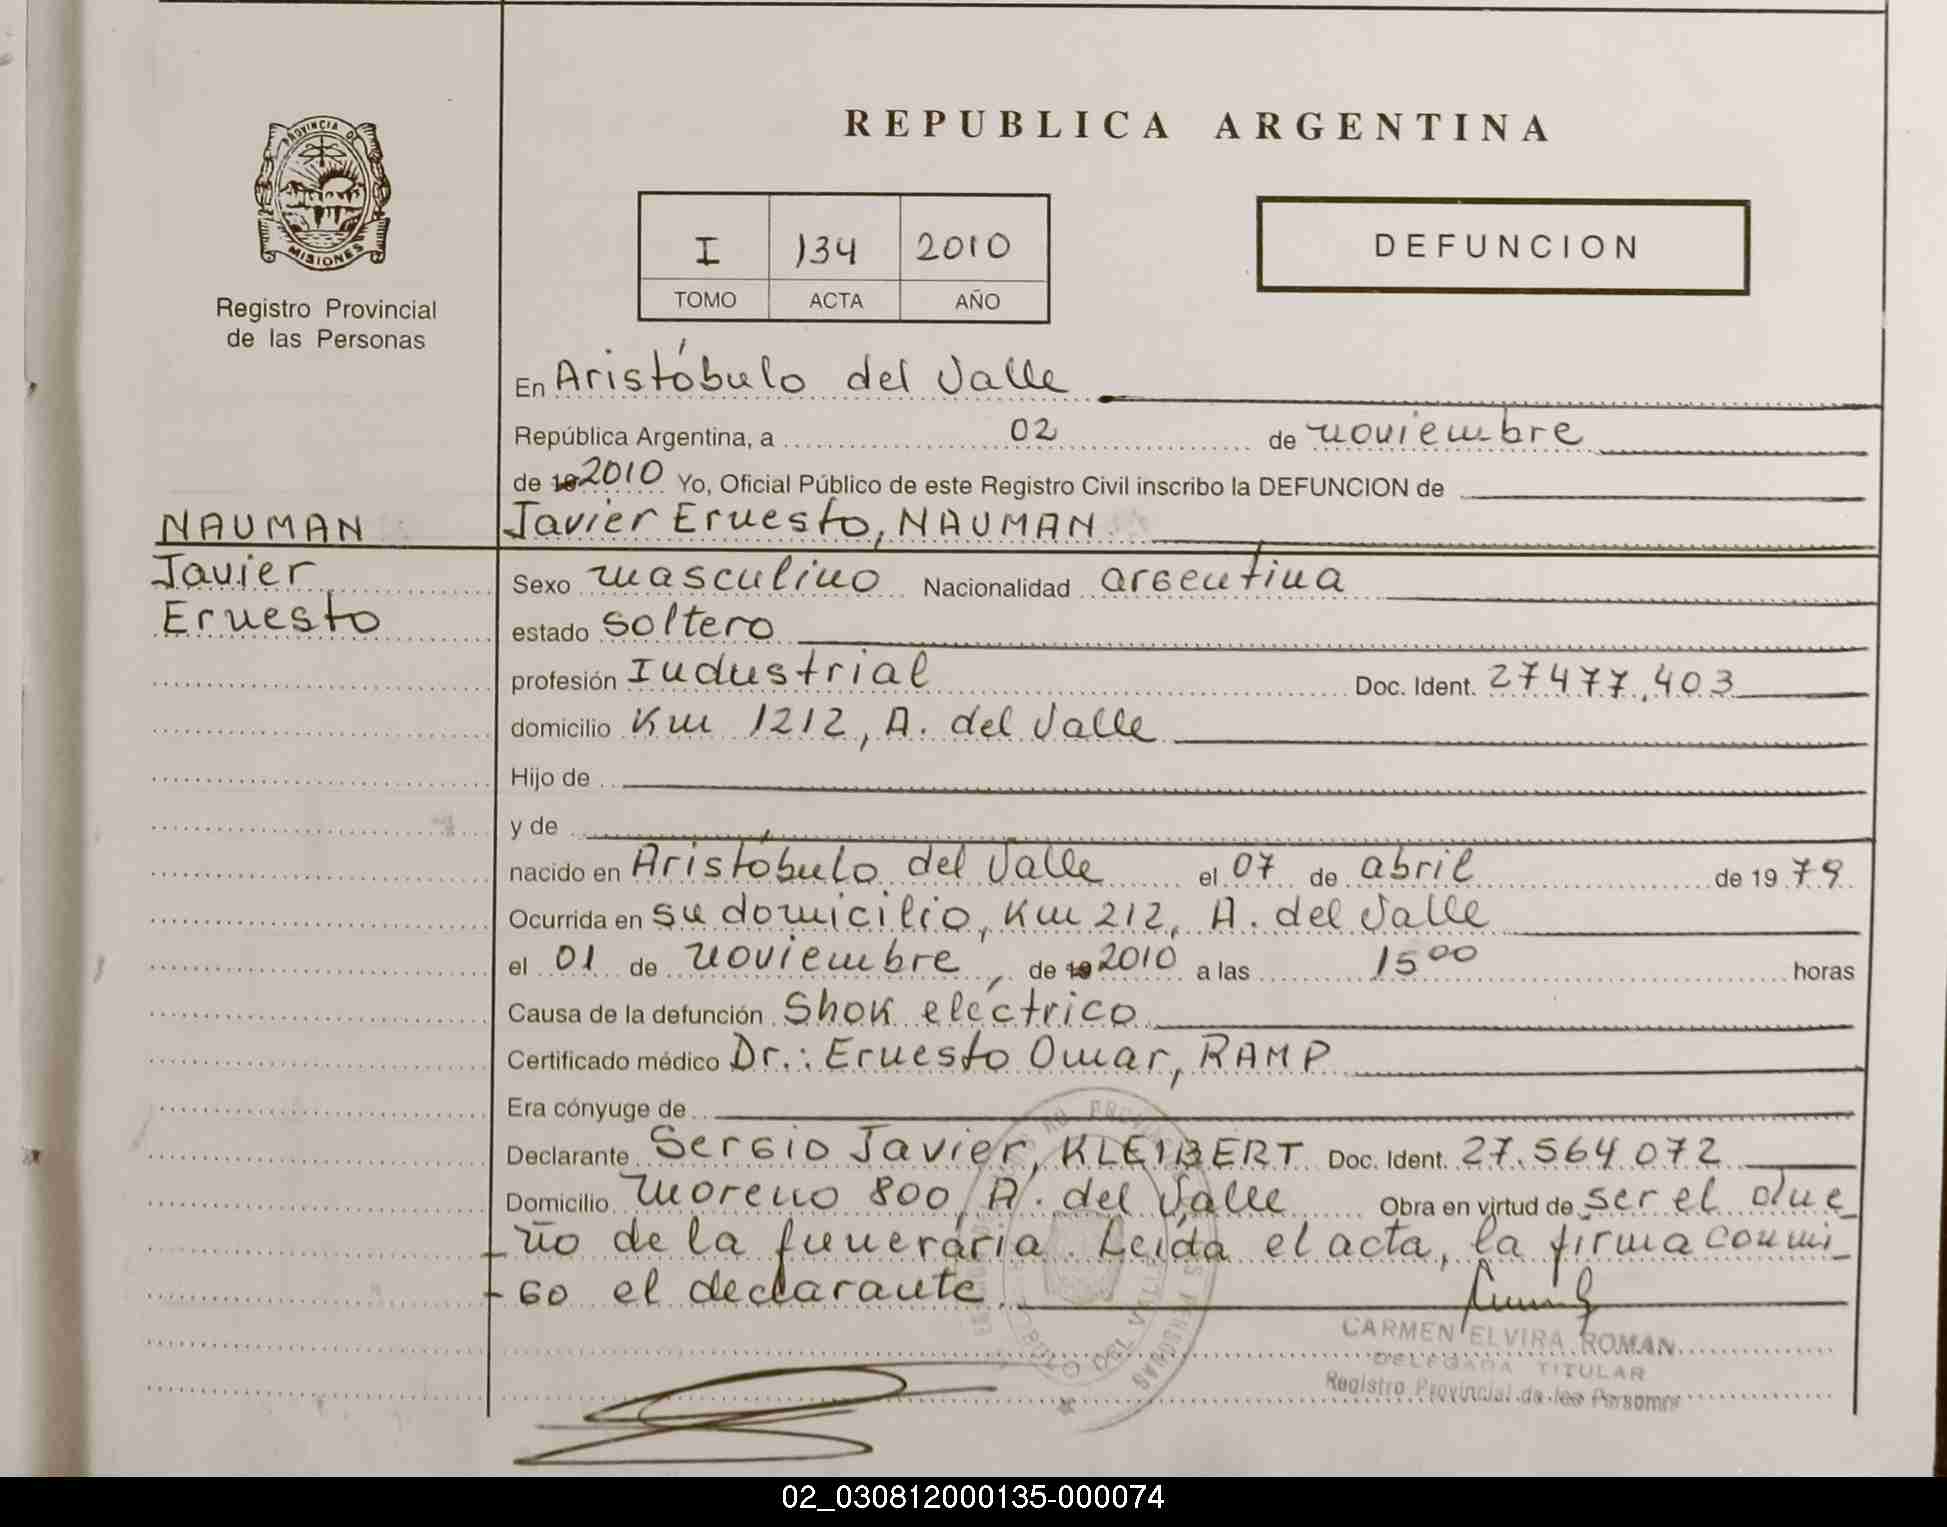 REPUBLICA ARGENTINA
PROVINCIA DE
MISIONES
Registro Provincial
de las Personas
I 134 2010
TOMO ACTA AÑO
DEFUNCION
En Aristóbulo del Valle
República Argentina, a 02 de noviembre
de 19 2010 Yo, Oficial Público de este Registro Civil inscribo la DEFUNCION de
NAUMAN
Javier
Ernesto
Javier Ernesto, NAUMAN
Sexo masculino Nacionalidad argentina
estado soltero
profesión Industrial Doc. Ident. 27477.403
domicilio Km 1212, A. del Valle
Hijo de
y de
nacido en Aristóbulo del Valle el 07 de abril de 1979
Ocurrida en su domicilio, Km 212, A. del Valle
el 01 de noviembre, de 19 2010 a las 15 00 horas
Causa de la defunción Shok eléctrico
Certificado médico Dr.: Ernesto Omar, RAMP
Era cónyuge de
Declarante Sergio Javier, KLEIBERT Doc. Ident. 27.564.072
Domicilio Moreno 800, A. del Valle Obra en virtud de ser el due
-ño de la funeraria. Leída el acta, la firma conmi
-go el declarante
CARMEN ELVIRA ROMAN
DELEGADA TITULAR
Registro Provincial de las Personas
02_030812000135-000074